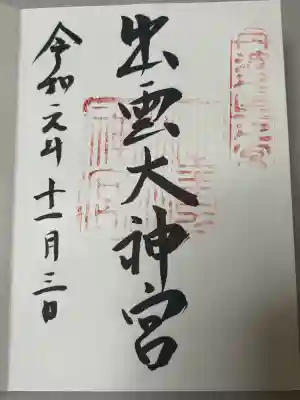 出雲大神宮
令和元年十一月三日